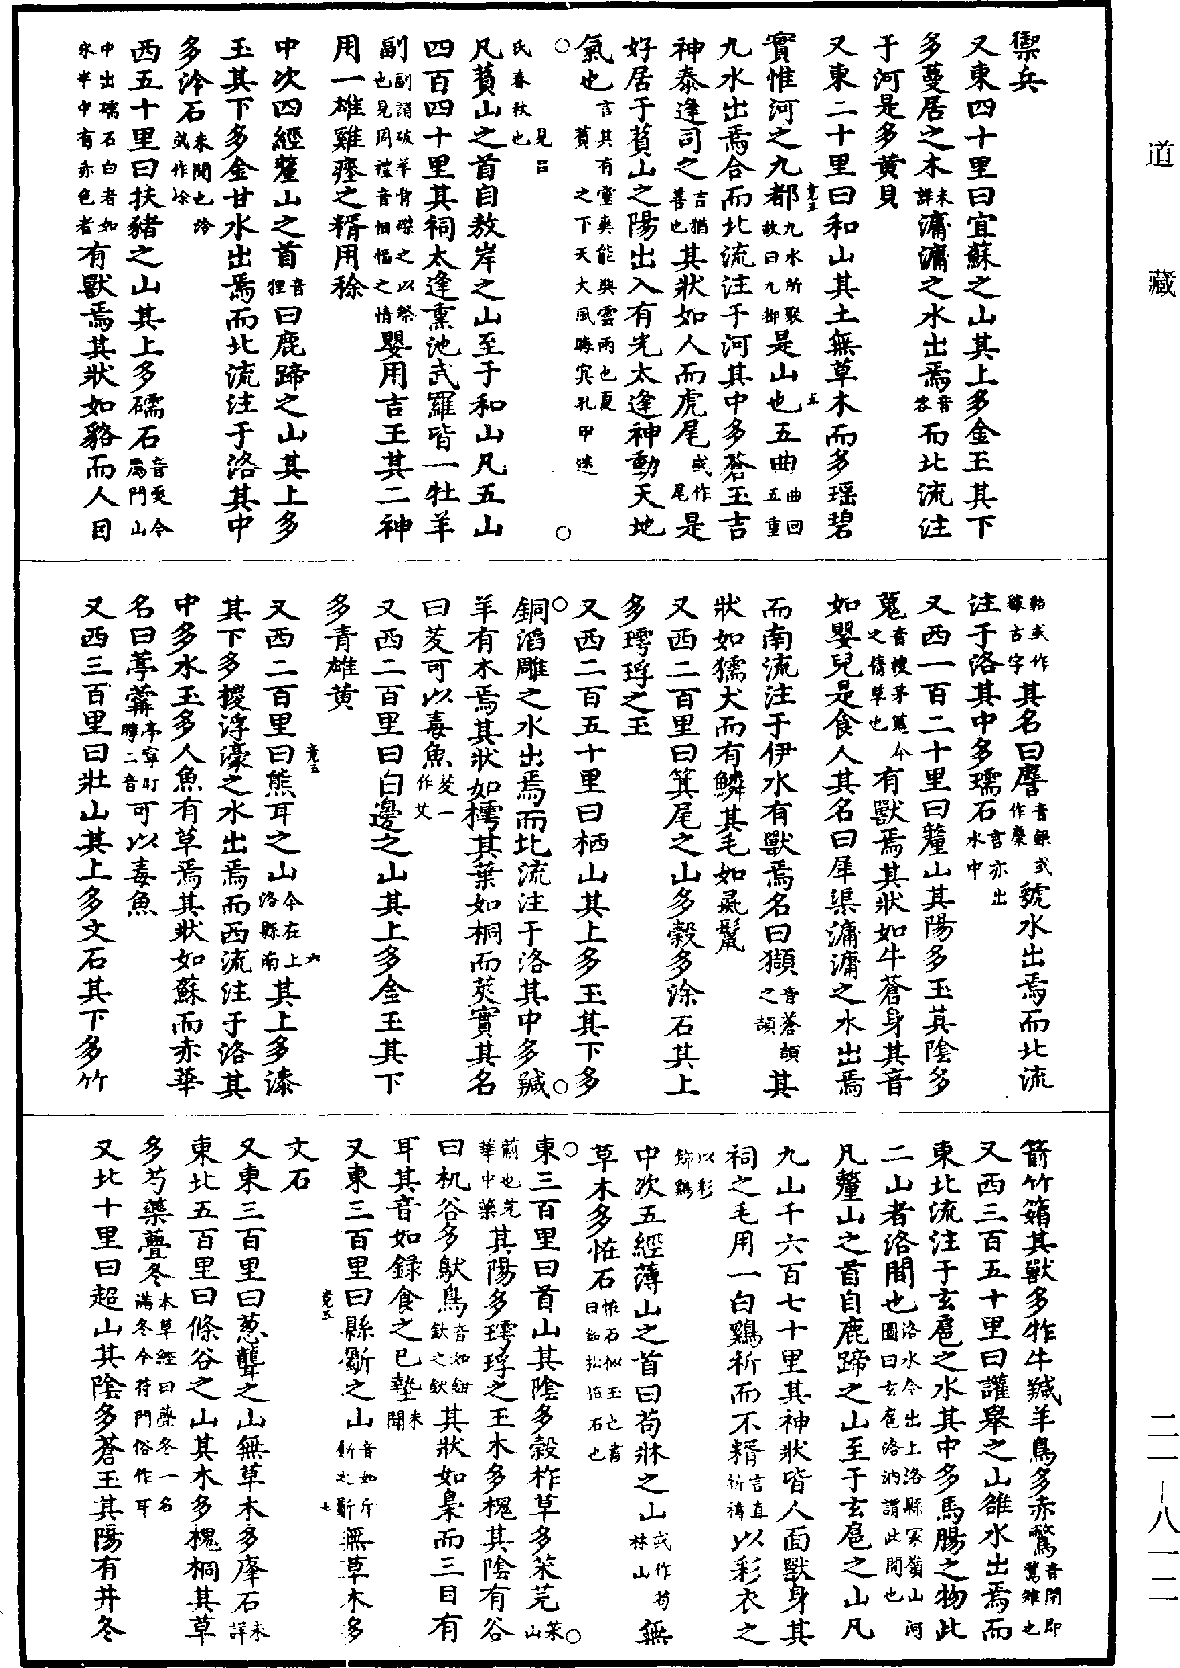 道藏
禦兵
又東四十里曰宜蘇之山其上多金玉其下
多蔓居之木未詳滽滽之水出焉音容而北流注
于河是多黃貝
又東二十里曰和山其土無草木而多瑶碧
實惟河之九都九水所聚故曰九都是山也五曲曲回五重
九水出焉合而北流注于河其中多蒼玉吉
神泰逢司之吉猶善也其狀如人而虎尾或作尾是
好居于萯山之陽出入有光太逢神動天地
氣也言其有靈爽能興雲雨也夏孔甲迷之下天大風晦冥
氏春秋也
凡萯山之首自敖岸之山至于和山凡五山
四百四十里其祠太逢熏池武羅皆一牡羊
副副謂破羊骨磔之以祭也見周禮音悃愊之愊嬰用吉玉其二神
用一雄雞瘞之糈用稌
中次四經釐山之首音狸曰鹿蹄之山其上多
玉其下多金甘水出焉而北流注于洛其中
多泠石未聞也泠或作涂
西五十里曰扶豬之山其上多礝石音耎今鴈門山
中出礝石白者如氷半中有赤色者有獸焉其狀如貉而人目
貉或作𧳜古字其名曰䴦音銀或作麋號水出焉而北流
注于洛其中多瓀石言亦出水中
又西一百二十里曰釐山其陽多玉其陰多
蒐音搜茅蒐今之蒨草也有獸焉其狀如牛蒼身其音
如嬰兒是食人其名曰犀渠滽滽之水出焉
而南流注于伊水有獸焉名曰獺音蒼頡之頡其
狀如獳犬而有鱗其毛如彘鬣
又西二百里曰箕尾之山多穀多涂石其上
多㻬琈之玉
又西二百五十里曰柄山其上多玉其下多
銅滔雕之水出焉而北流注于洛其中多羬
羊有木焉其狀如樗其葉如桐而莢實其名
曰茇可以毒魚茇一作艾
又西二百里曰白邊之山其上多金玉其下
多青雄黃
又西二百里曰熊耳之山今在上洛縣南其上多漆
其下多椶浮濠之水出焉而西流注于洛其
中多水玉多人魚有草焉其狀如蘇而赤華
名曰葶薴亭寧耵聹二音可以毒魚
又西三百里曰壯山其上多文石其下多竹
箭竹䉋其獸多㸲牛羬羊鳥多赤鷩音閉即鷩雉也
又西三百五十里曰讙舉之山雒水出焉而
東北流注于玄扈之水其中多馬腸之物此
二山者洛間也洛水今出上洛縣冢嶺山河圖曰玄扈洛汭謂此間也
凡釐山之首自鹿蹄之山至于玄扈之山凡
九山千六百七十里其神狀皆人面獸身其
祠之毛用一白鷄祈而不糈言直祈禱以彩衣之
以彩飾鷄
中次五經薄山之首曰苟牀之山或作苟林山無
草木多怪石怪石似玉也書曰鉛松怪石也
東三百里曰首山其陰多穀柞草多䒬芫䒬山
薊也芫華中藥其陽多㻬琈之玉木多槐其陰有谷
曰机谷多䳅鳥音如鉗釱之釱其狀如梟而三目有
耳其音如錄食之已墊未聞
又東三百里曰縣斸之山音如斤斸之斸無草木多
文石
又東三百里曰葱聾之山無草木多㻁石未詳
東北五百里曰條谷之山其木多槐桐其草
多芍藥虋冬本草經曰虋冬一名滿冬今符門俗作耳
又北十里曰超山其陰多蒼玉其陽有井冬
二一—八一二